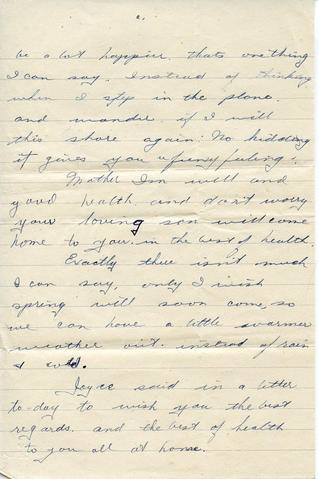 2.
be a lot happier, thats one thing
I can say. Instead of thinking
when I step in the plane.
and wonder if I will
this shore again. No kidding
it gives you a funny feeling.
Mother Im will and
good health and don't worry
your loving son will come
home to you. in the best of health.
Exactly there isn't much
I can say, only I wish
spring will soon come, so
we can have a little warmer
weather out. instead of rain
& cold.
Joyce said in a letter
to-day to wish you the best
regards. and the best of health
to you all at home.